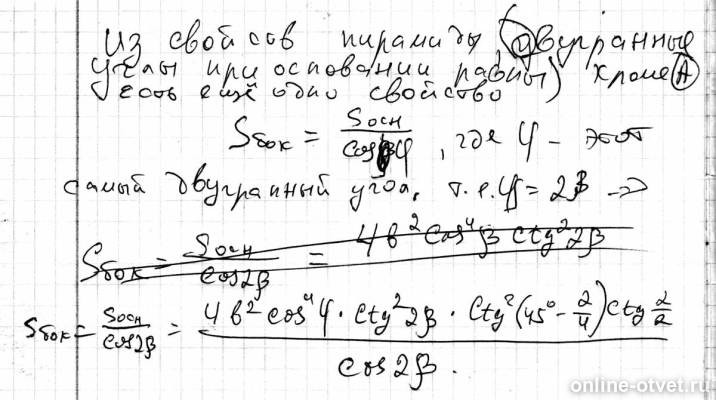 Из свойсв пирамиды (двугранные
углы при основании равны) кроме (А)
есть ещё одно свойство
Sбок = Sосн / cos φ, где φ - этот
самый двугранный угол, т.е. φ = 2β =>
Sбок = Sосн / cos2β = 4b² cos⁴β ctg²2β
Sбок = Sосн / cos2β = 4b² cos⁴φ · ctg²2β · ctg²(45° - 2/4) ctg 2/2 / cos 2β.
online-otvet.ru